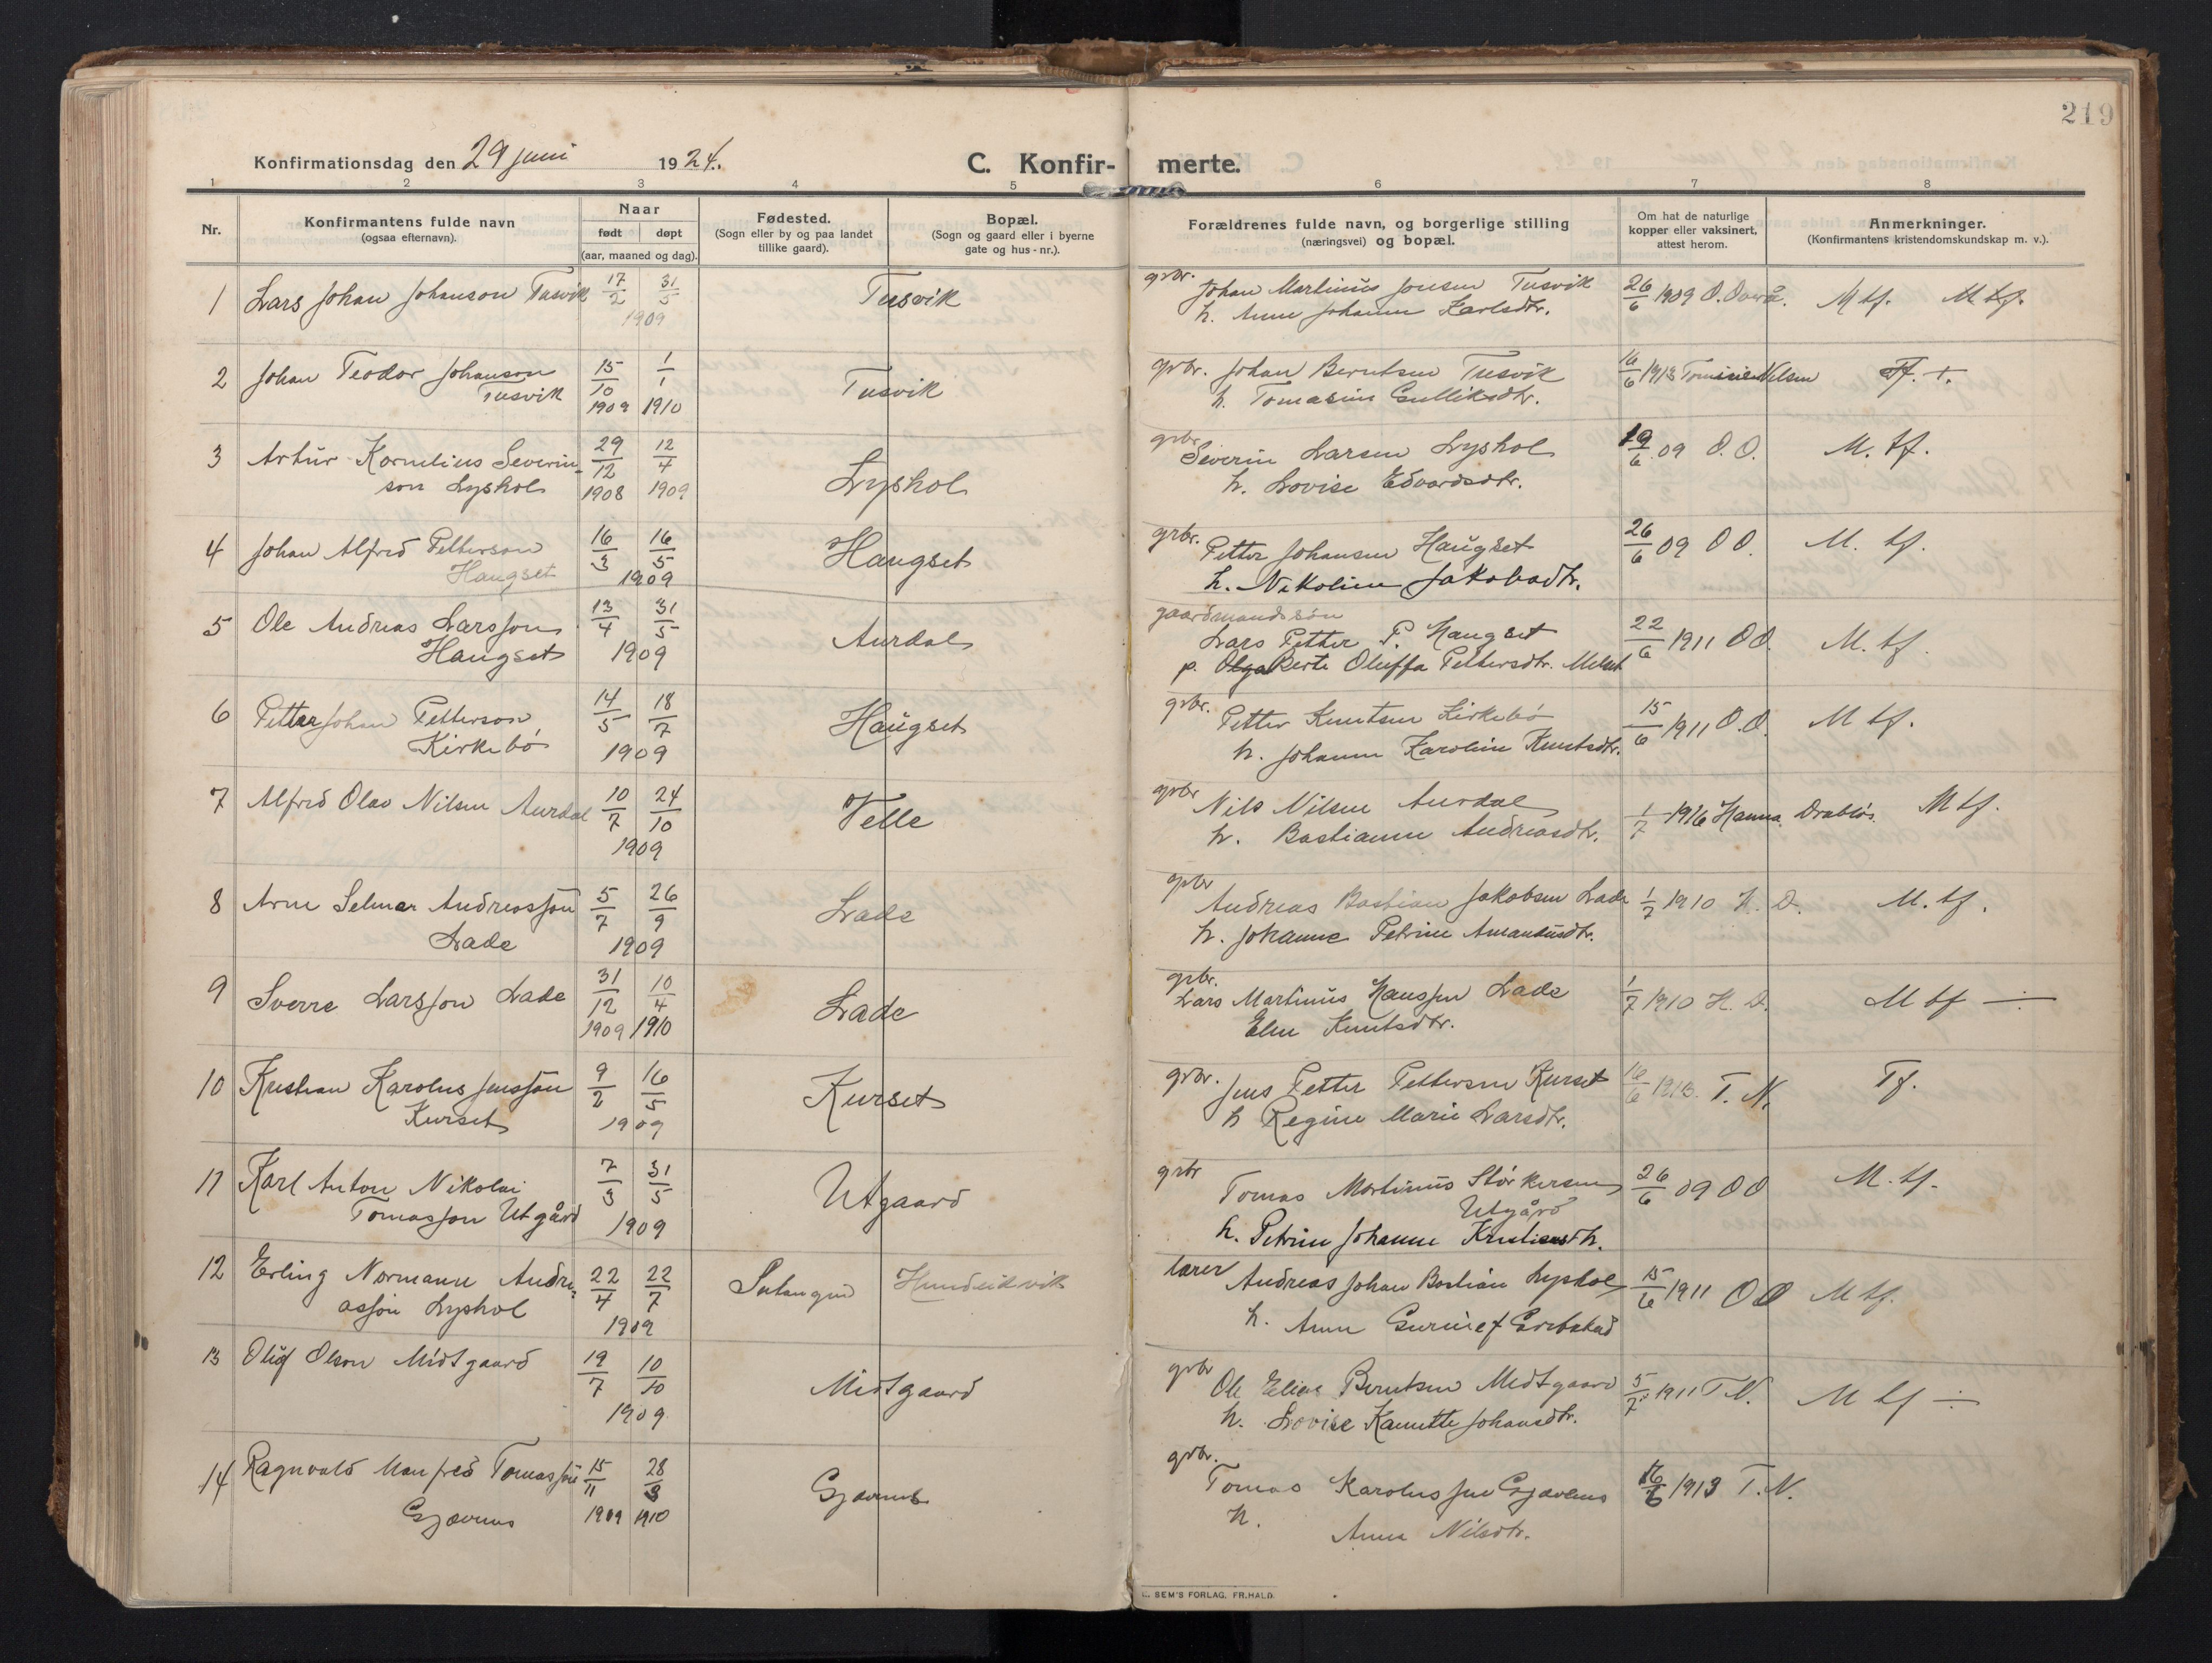 219
Konfirmationsdag den 29 juni 1924.
C. Konfir- merte.
1 2 3 4 5 6 7 8
Nr.
Konfirmantens fulde navn
(ogsaa efternavn).
Naar
født døpt
(aar, maaned og dag).
Fødested.
(Sogn eller by og paa landet
tillike gaard).
Bopæl.
(Sogn og gaard eller i byerne
gate og hus-nr.).
Forældrenes fulde navn, og borgerlige stilling
(næringsvei) og bopæl.
Om hat de naturlige
kopper eller vaksinert,
attest herom.
Anmerkninger.
(Konfirmantens kristendomskundskap m. v.).
1 Lars Johan Johanson Tusvik 17/2 31/5 Tusvik grbr. Johan Martinus Jonsen Tusvik 26/6 1909 M tf. M. tf.
1909 h. Anne Johanne Karlsdtr.
2 Johan Teodor Johanson 15/10 1/1 Tusvik grbr. Johan Berntsen Tusvik 16/6 1913 Tomine Nilsen Tf. +.
Tusvik 1909 1910 h. Tomasine Gulliksdtr.
3 Artur Kornelius Severin- 29/12 12/4 Lyshol grbr Severin Larsen Lyshol 19/6 09 O. O. M. tf.
son Lyshol 1908 1909 h. Lovise Edvardsdtr.
4 Johan Alfred Petterson 16/3 16/5 Haugset grbr. Petter Johansen Haugset 26/6 09 O O. M. tf.
Haugset 1909 h. Nikoline Jakobsdtr.
5 Ole Andreas Larsson 13/4 31/5 Aurdal gaardmandssøn
Lars Petter P. Haugset 22/6 1911 O O. M. tf.
Haugset 1909 p. Olga Berte Oluffa Pettersdtr. Melset
6 Petter Johan Petterson 14/5 18/7 Haugset grbr. Petter Knutsen Kirkebø 15/6 1911 O. O. M tf.
Kirkebø 1909 h. Johanne Karoline Knutsdtr.
7 Alfred Olav Nilsen Aurdal 10/7 24/10 Velle grbr Nils Nilsen Aurdal 1/7 1916 Hanna Drabløs. M tf.
1909 h. Bastianne Andreasdtr.
8 Arne Selmer Andreasson 5/7 26/9 Lade grbr Andreas Bastian Jakobsen Lade 1/7 1910 H. D. M. tf.
Lade 1909 h. Johanne Petrine Amandusdtr.
9 Sverre Larsson Lade 31/12 10/4 Lade grbr. Lars Martinus Hanssen Lade 1/7 1910 H. D. M tf ÷
1909 1910 Elen Knutsdtr.
10 Kristian Karolus Jensson 9/2 16/5 Kurset grbr. Jens Petter Pettersen Kurset 16/6 1913. T. N. Tf.
Kurset 1909 h Regine Marie Larsdtr.
11 Karl Anton Nikolai 7/3 31/5 Utgaard grbr Tomas Martinus Størkersen 26/6 09 O O M. tf.
Tomasson Utgård 1909 Utgård
h. Petrine Johanne Kristiansdtr.
12 Erling Normann Andre- 22/4 22/7 Hundeidvik lærer Andreas Johan Bastian Lyshol 15/6 1911 O O M tf.
asson Lyshol 1909 h. Anne Gurine f Grebstad
13 Oluf Olson Midtgaard 19/7 10/10 Midtgaard grbr Ole Elias Berntsen Midtgaard 5/7 1911 T. N. M tf ÷
1909 h. Lovise Kanutte Johansdtr.
14 Ragnvald Manfred Tomasson 15/11 28/3 Gjævenes grbr. Tomas Karolus Jensen Gjævenes 16/6 1913 T. N.
Gjævenes 1909 1910 h. Anna Nilsdtr.
SEM'S FORLAG, FR.HALD.